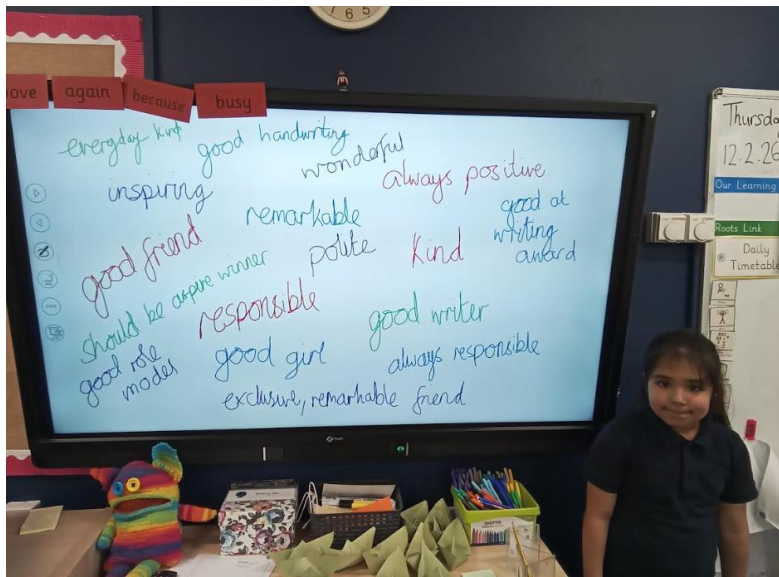 7 6 5
ove
again
because
busy
everyday kind
good handwriting
wonderful
inspiring
always positive
remarkable
good at
writing
award
good friend
polite
kind
should be aspire winner
responsible
good writer
good role
model
good girl
always responsible
exclusive, remarkable friend
Thursda
12.2.26
Our Learning
Roots Link
Daily
Timetable